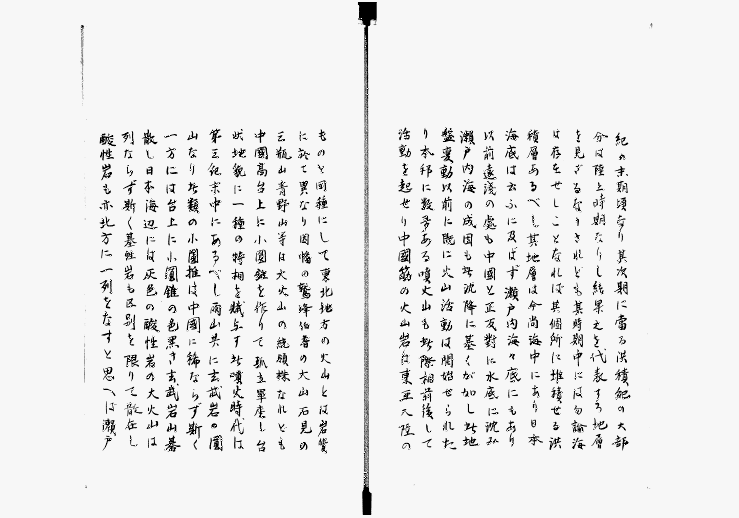 紀の末期頃なり其次期に當る洪積紀の大部
分は陸上時期なりし結果之を代表する地層
を見ざるなりされども其時期中には勿論海
は存在せしことなれば其個所に堆積せる洪
積層あるべし其地層は今尚海中にあり日本
海底は云ふに及ばず瀬戸内海々底にもあり
以前遠浅の處も中國と正反對に水底に沈み
瀬戸内海の成因も此沈降に基くが如し此地
盤変動以前に既に火山活動は開始せられた
り本邦に数多ある噴火山も此際相前後して
活動を起せり中國筋の火山岩は東亜大陸の
ものと同種にして東北地方の火山とは岩質
に於て異なり因幡の鷲峰伯耆の大山石見の
三瓶山青野山等は大火山の統領株なれども
中國高台上に小圓錐を作りて孤立単座し台
状地貌に一種の特相を賦与す此噴火時代は
第三紀末中にあるべし両山共に玄武岩の圓
山なり此類の小圓推は中國に稀ならず斯く
一方には台上に小圓錐の色黒き玄武岩山碁
散し日本海辺には灰色の酸性岩の大火山は
列ならず斯く基性岩も区別を限りて散在し
酸性岩も亦北方に一列をなすと思へば瀬戸